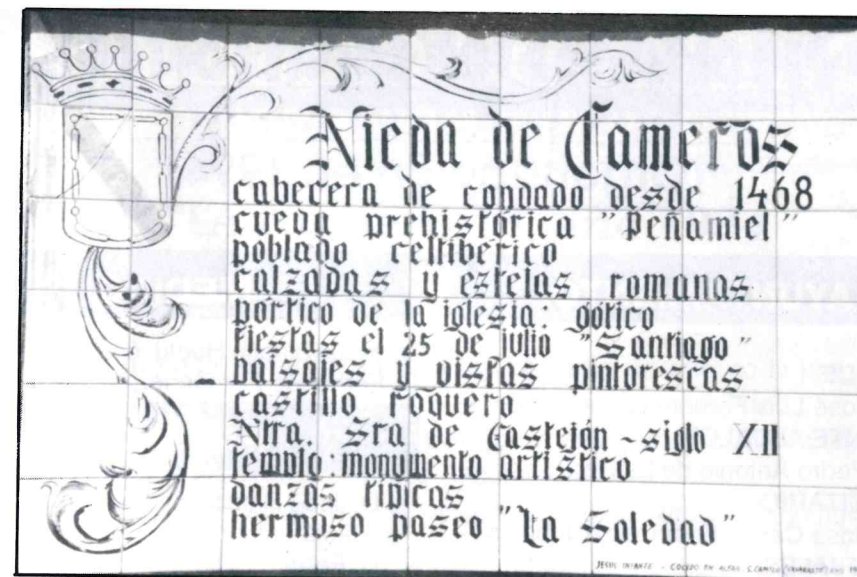 Nieva de Cameros
cabecera de condado desde 1468
cueva prehistórica "Peñamiel"
poblado celtiberico
calzadas y estelas romanas
pórtico de la iglesia gótico
fiestas el 25 de julio "Santiago"
paisajes y vistas pintorescas
castillo roquero
Ntra. Sra de Castejón ~ siglo XII
templo monumento artístico
danzas típicas
hermoso paseo "La Soledad"
JESUS INFANTE - COCIDO EN ALFAR